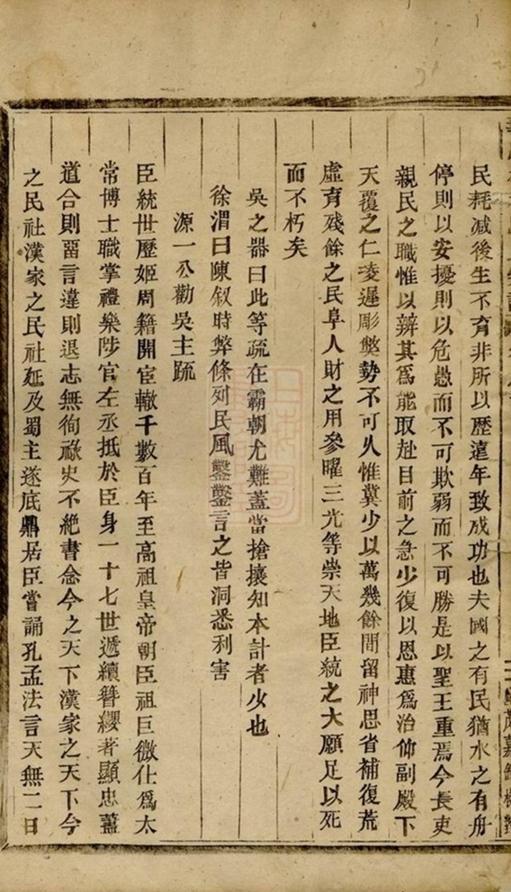 民耗減後生不育非所以歷遠年致成功也夫國之有民猶水之有舟
停則以安擾則以危愚而不可欺弱而不可勝是以聖王重焉今長吏
親民之職惟以辨其爲能取赴目前之急少復以恩惠爲治仰副殿下
天覆之仁凌遲彫獘勢不可久惟冀少以萬幾餘閒留神思省補復荒
虛育殘餘之民阜人財之用參曜三光等崇天地臣統之大願足以死
而不朽矣
吳之器曰此等疏在霸朝尤難蓋當搶攘知本計者少也
徐渭曰陳叙時弊條列民風鑿鑿言之皆洞悉利害
源一公勸吳主䟽
臣統世歷姬周籍開宦轍千數百年至高祖皇帝朝臣祖巨微仕爲太
常博士職掌禮樂陟官左丞抵於臣身一十七世遞續簪纓者顯忠藎
道合則畱言違則退志無徇祿史不絶書念今之天下漢家之天下今
之民社漢家之民社延及蜀主遂底鼎居臣嘗誦孔孟法言天無二日